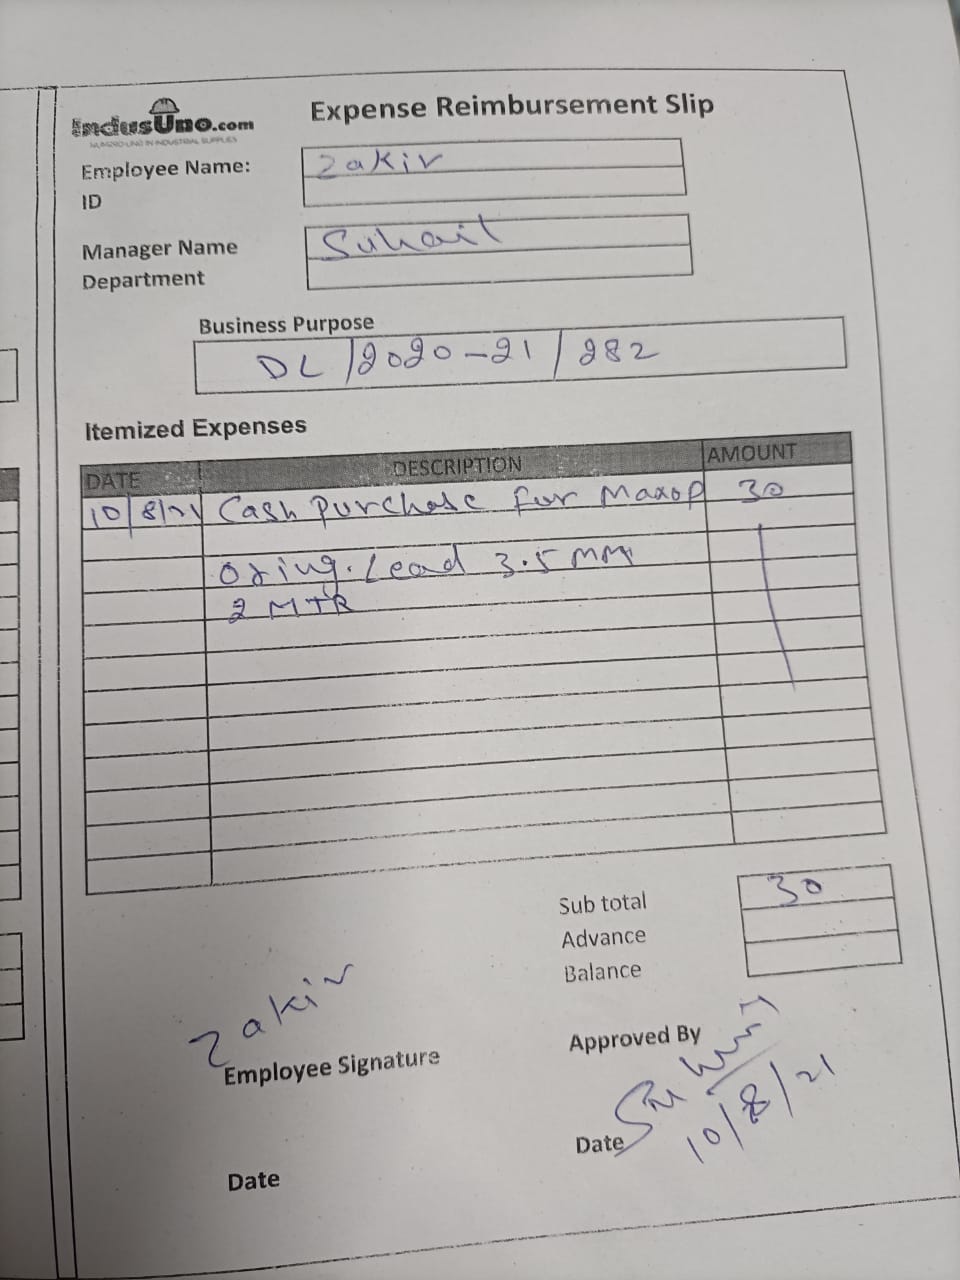 IndusUno.com
NUMERO UNO IN INDUSTRIAL SUPPLIES
Expense Reimbursement Slip
Employee Name: Zakir
ID
Manager Name Suhail
Department
Business Purpose
DL/2020-21/282
Itemized Expenses
DATE DESCRIPTION AMOUNT
10/8/21 Cash Purchase for Maxop 30
Oring. Lead 3.5 MM
2 MTR
Sub total 30
Advance
Balance
Zakir
Employee Signature
Approved By
Suhail
10/8/21
Date
Date